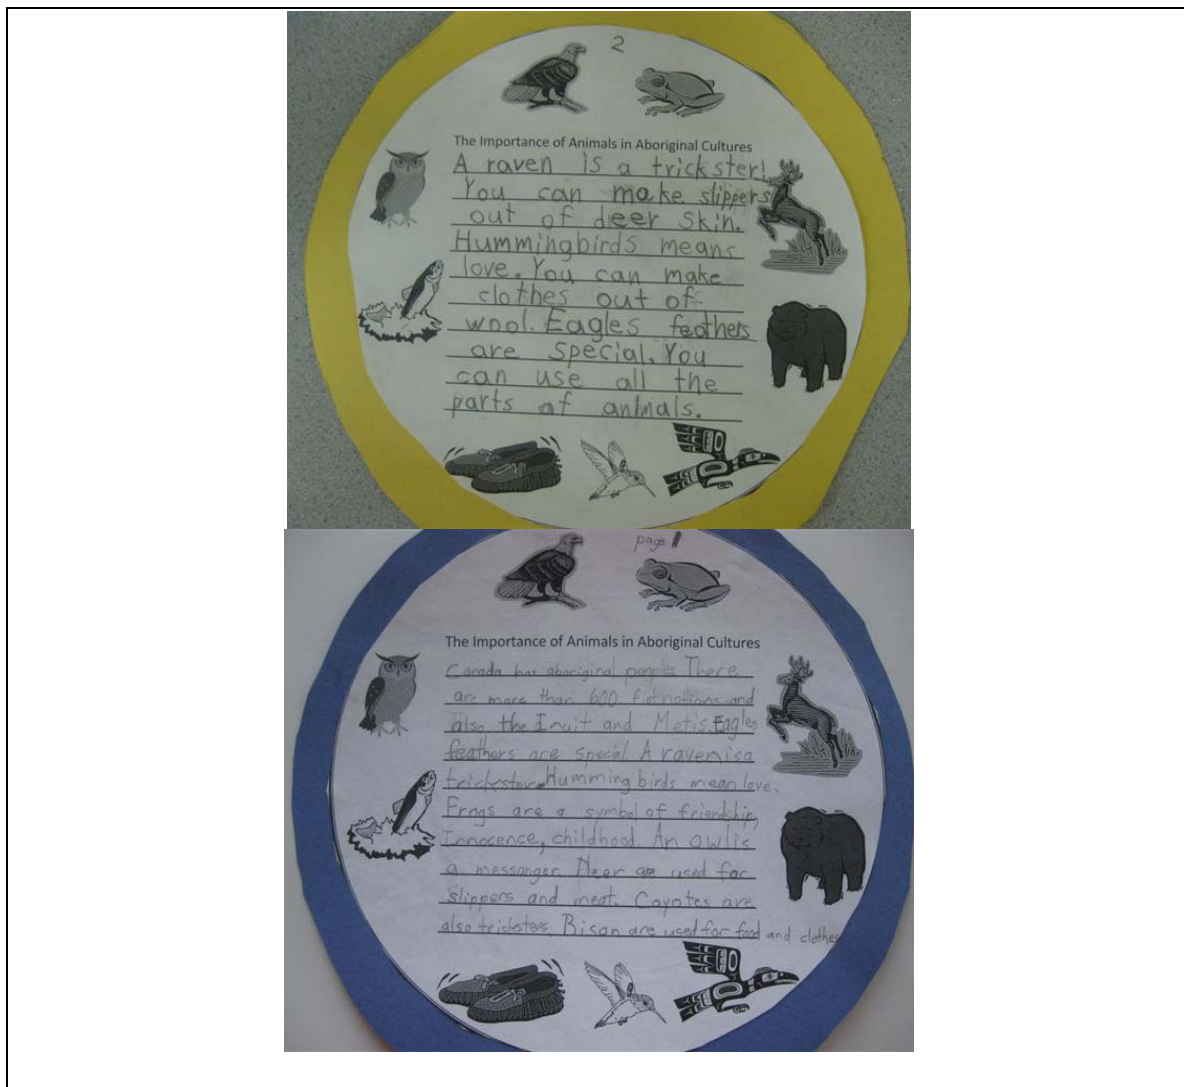 2
The Importance of Animals in Aboriginal Cultures
A raven is a trickster!
You can make slippers
out of deer skin.
Hummingbirds means
love. You can make
clothes out of
wool. Eagles feathers
are special. You
can use all the
parts of animals.
page 1
The Importance of Animals in Aboriginal Cultures
Canada has aboriginal peoples There
are more than 600 and
also the Inuit and Metis. Eagles
feathers are special A raven is a
trickster. Humming birds mean love.
Frogs are a symbol of friendship,
Innocence, childhood. An owl is
a messanger. Deer are used for
slippers and meat. Coyotes are
also Bison are used for food and clothes